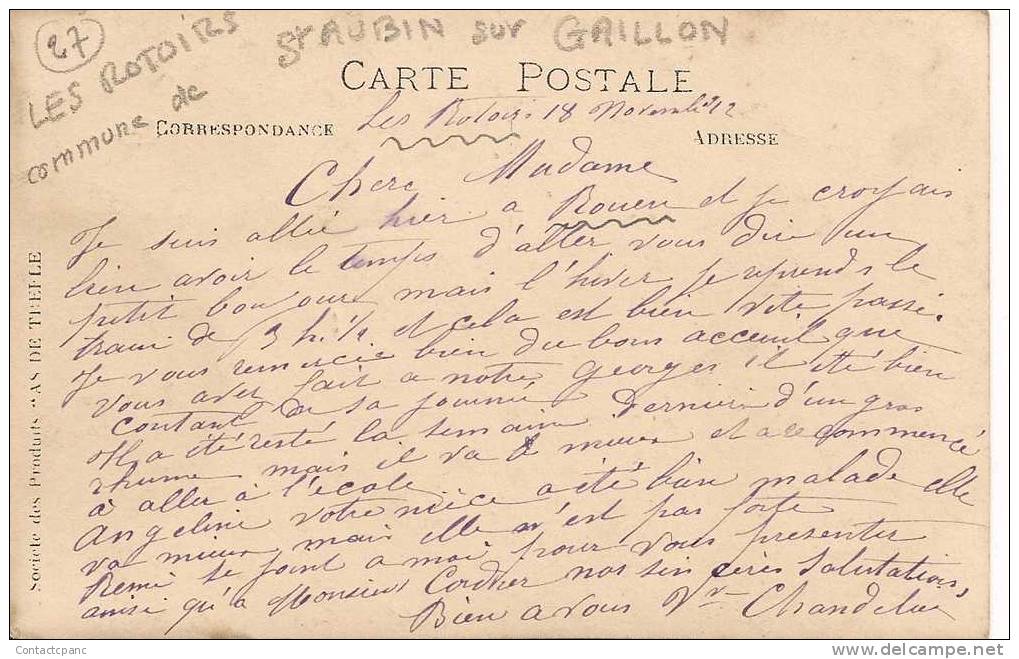 27
LES ROTOIRS
commune de
St AUBIN sur GAILLON
CARTE POSTALE
CORRESPONDANCE
ADRESSE
Les Rotoirs 18 Novembre 12
Chere Madame
Je suis allée hier a Rouen et je croyais
bien avoir le temps d'aller vous dire un
petit bonjour mais l'hiver je reprends le
train de 3 h. 1/2 et cela est bien vite passé.
Je vous remercie bien du bons acceuil que
vous avez fait a notre Georges il été bien
contant de sa journée
Il a été resté la semaine dernière d'un gros
rhume mais il va mieux et a recommencé
à aller à l'école
Angeline votre nièce a été bien malade elle
va mieux mais elle n'est pas forte
Remi se joint a moi pour vous presenter
ainsi qu'a Monsieur Cordier nos sincères Salutations
Bien a vous Vve
Société des Produits "AS DE TREFLE
Contactcpanc
www.delcampe.net